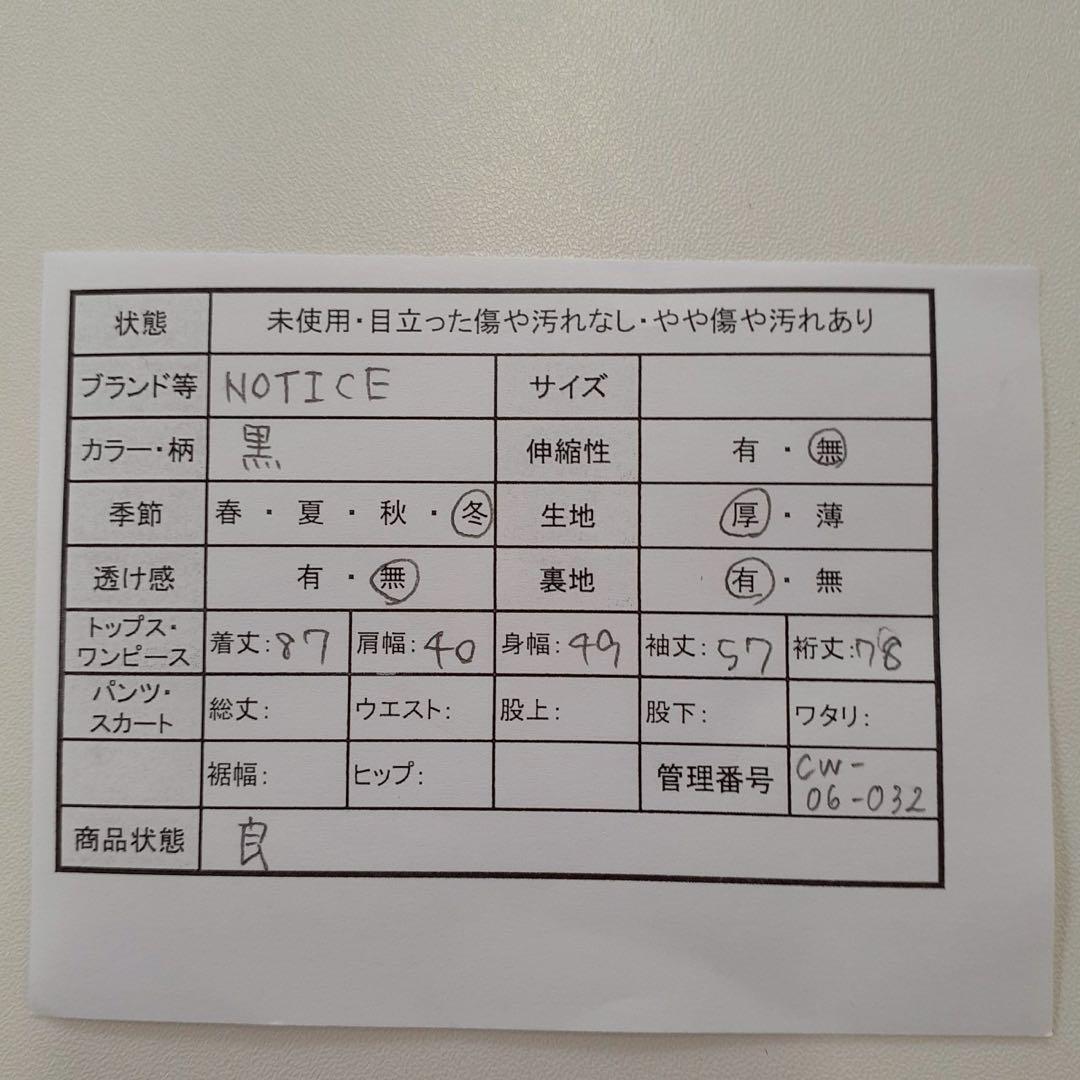 状態 未使用・目立った傷や汚れなし・やや傷や汚れあり
ブランド等 NOTICE サイズ
カラー・柄 黒 伸縮性 有・無
季節 春・夏・秋・冬 生地 厚・薄
透け感 有・無 裏地 有・無
トップス・
ワンピース 着丈:87 肩幅:40 身幅:49 袖丈:57 裄丈:78
パンツ・
スカート 総丈: ウエスト: 股上: 股下: ワタリ:
裾幅: ヒップ: 管理番号 CW-
06-032
商品状態 良